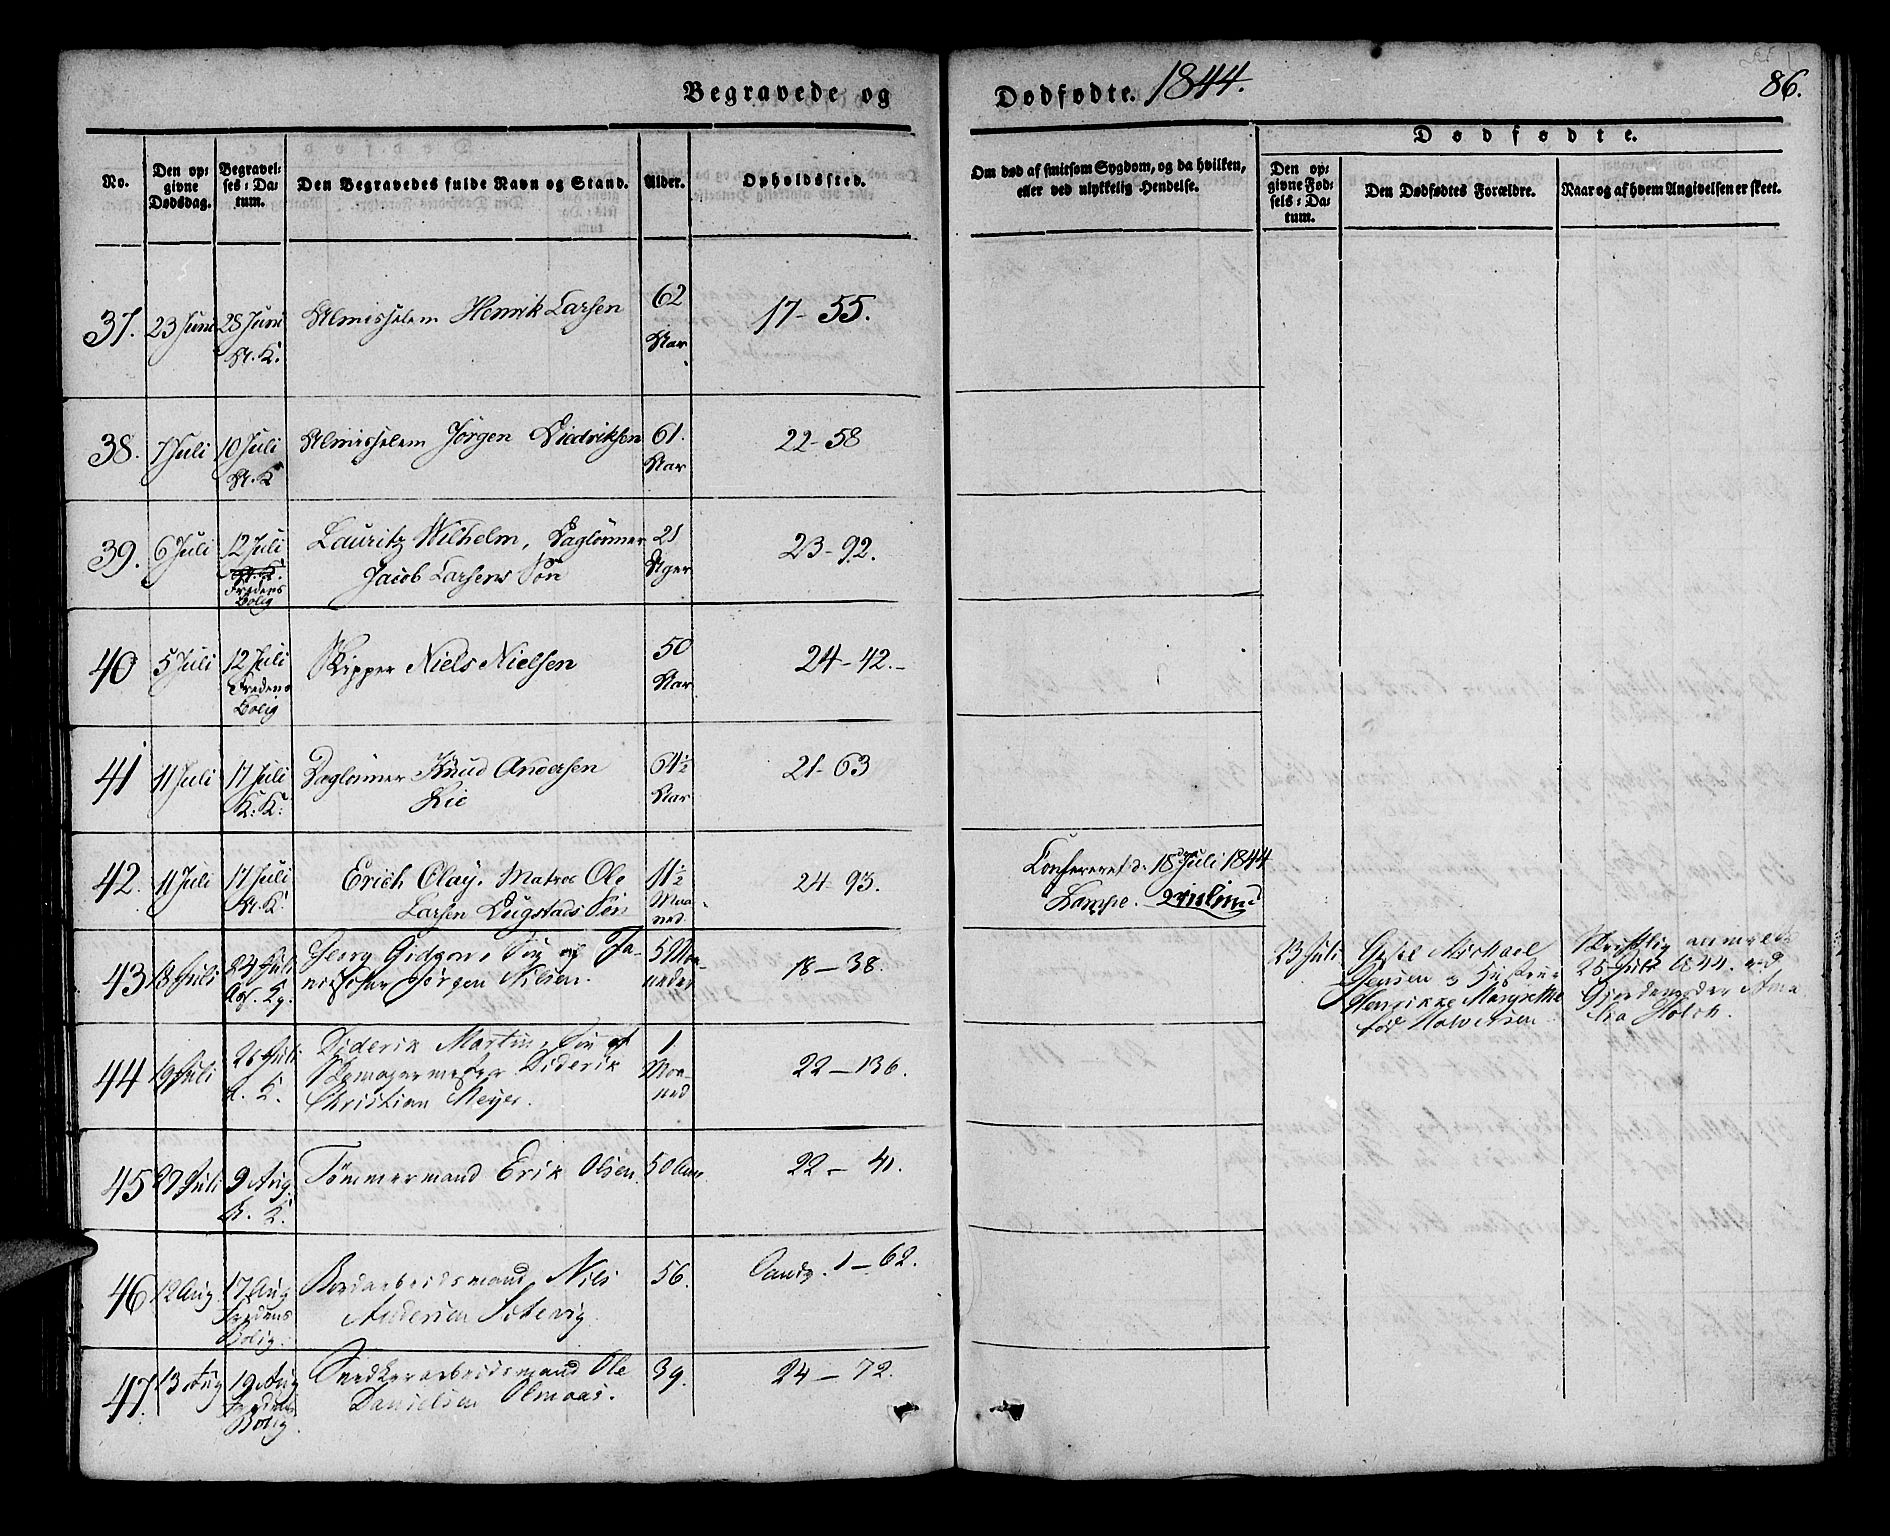 Begravede og
Dødfødte. 1844.
86.
No.
Den opgivne Dødsdag.
Begravelses-Datum.
Den Begravedes fulde Navn og Stand.
Alder.
Opholdssted.
Om død af smitsom Sygdom, og da hvilken, eller ved ulykkelig Hendelse.
Dødfødte.
Den opgivne Fødsels-Datum.
Den Dødfødtes Forældre.
Naar og af hvem Angivelsen er skeet.
37. 23 Juni 28 Juni Almisselem Henrik Larsen 62 17-55.
St. K. Aar
38. 7 Juli 10 Juli Almisselem Jörgen Diedriksen 61. 22-58
St. K Aar
39. 6 Juli 12 Juli Lauritz Wilhelm, Daglönner 21 23-92.
St. K. Jacob Larsens Sön Uger
Fredens
Bolig
40 5 Juli 12 Juli Skipper Niels Nielsen 50 24-42.-
Fredens Aar
Bolig
41 11 Juli 17 Juli Daglönner Knud Andersen 64½ 21-63
K. K. Lie Aar
42. 11 Juli 17 Juli Erich Olay. Matros Ole 11½ 24-93.
St. K. Larsen Sön Maaned
Confereret d. 18 Juli 1844
43 18 Juli 24 Juli Georg Gidgon, Sön af Ja- 5 Maa- 18-38.
nitschar Jörgen Nilsen. neder
23 Juli Michael
Jensen og Hustrue
Henrikke Margrethe
fød Halvorsen
Skriftlig anmeldt
25 Juli 1844. ved
Gjordemoder Ama
lia Holch.
44 19 Juli 26 Juli Diderik Martin, Sön af 1 22-136.
K. Skomagermester Diderik Maa-
Christian Meyer. ned
45 27 Juli 9 Aug. Tømmermand Erik Olsen 50 Aar 22-41.
K.
46 12 Aug 17 Aug Bordarbeidsmand Nils 56. Sandv. 1-62.
Fredens Andersen
Bolig.
47 13 Aug 19 Aug Snedkerarbeidsmand Ole 39. 24-72.
Fredens Danielsen Olmaas.
Bolig.